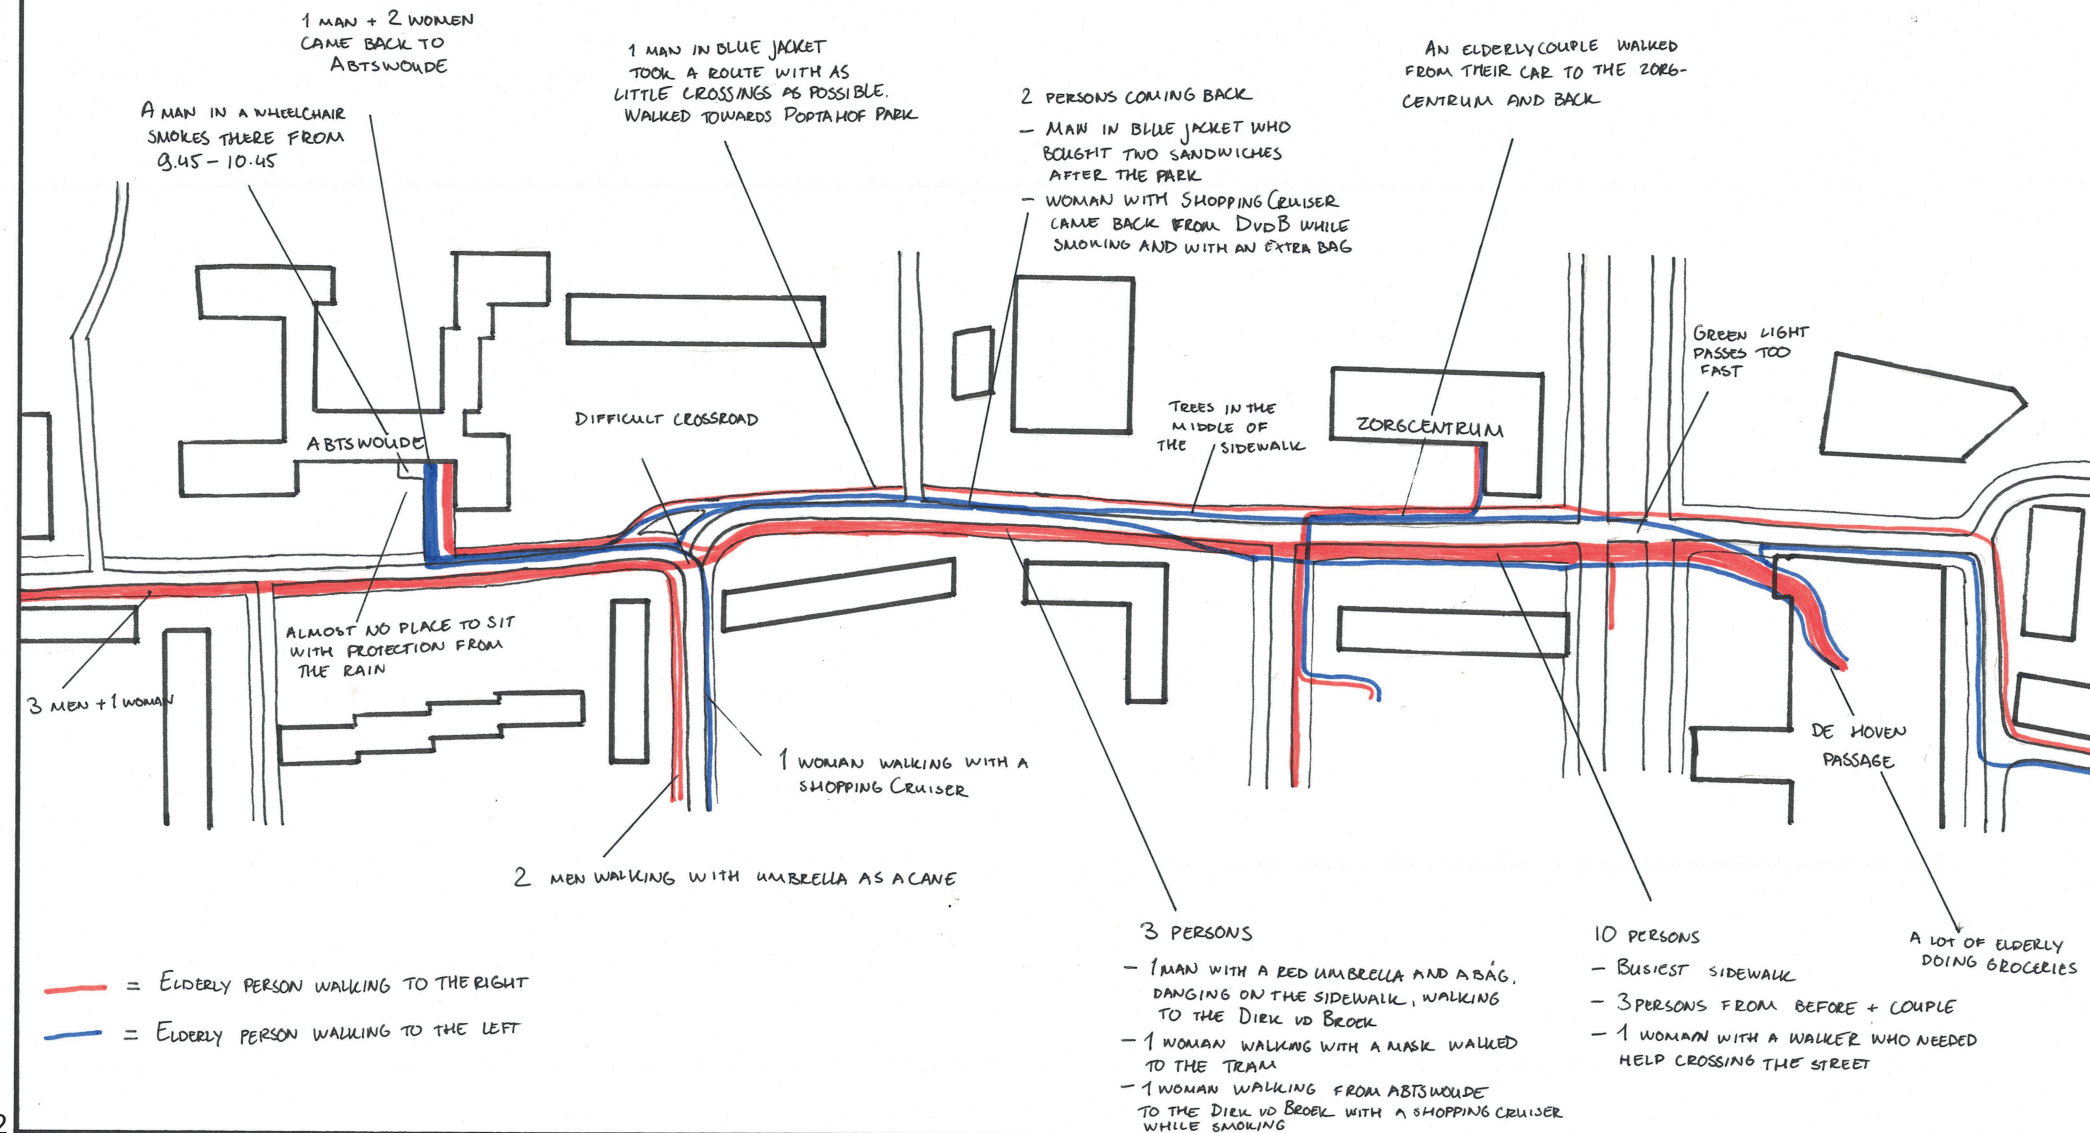 1 MAN + 2 WOMEN
CAME BACK TO
ABTSWOUDE
A MAN IN A WHEELCHAIR
SMOKES THERE FROM
9.45 - 10.45
1 MAN IN BLUE JACKET
TOOK A ROUTE WITH AS
LITTLE CROSSINGS AS POSSIBLE.
WALKED TOWARDS POPTAHOF PARK
2 PERSONS COMING BACK
- MAN IN BLUE JACKET WHO
BOUGHT TWO SANDWICHES
AFTER THE PARK
- WOMAN WITH SHOPPING CRUISER
CAME BACK FROM DVDB WHILE
SMOKING AND WITH AN EXTRA BAG
AN ELDERLY COUPLE WALKED
FROM THEIR CAR TO THE ZORG-
CENTRUM AND BACK
GREEN LIGHT
PASSES TOO
FAST
TREES IN THE
MIDDLE OF
THE SIDEWALK
DIFFICULT CROSSROAD
ABTSWOUDE
ZORGCENTRUM
ALMOST NO PLACE TO SIT
WITH PROTECTION FROM
THE RAIN
3 MEN + 1 WOMAN
1 WOMAN WALKING WITH A
SHOPPING CRUISER
2 MEN WALKING WITH UMBRELLA AS A CANE
DE HOVEN
PASSAGE
3 PERSONS
- 1 MAN WITH A RED UMBRELLA AND A BAG,
DANGING ON THE SIDEWALK, WALKING
TO THE DIRK VD BROEK
- 1 WOMAN WALKING WITH A MASK WALKED
TO THE TRAM
- 1 WOMAN WALKING FROM ABTSWOUDE
TO THE DIRK VD BROEK WITH A SHOPPING CRUISER
WHILE SMOKING
10 PERSONS
- BUSIEST SIDEWALK
- 3 PERSONS FROM BEFORE + COUPLE
- 1 WOMAN WITH A WALKER WHO NEEDED
HELP CROSSING THE STREET
A LOT OF ELDERLY
DOING GROCERIES
= ELDERLY PERSON WALKING TO THE RIGHT
= ELDERLY PERSON WALKING TO THE LEFT
2